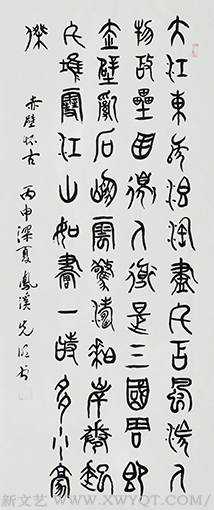 大江東去浪淘盡千古風流人
物故壘西邊人道是三國周郎
赤壁亂石崩雲驚濤裂岸卷起
千堆雪江山如畫一時多少豪
傑
赤壁怀古 丙申深夏 鳳溪
新文艺 WWW.XWYQT.COM/